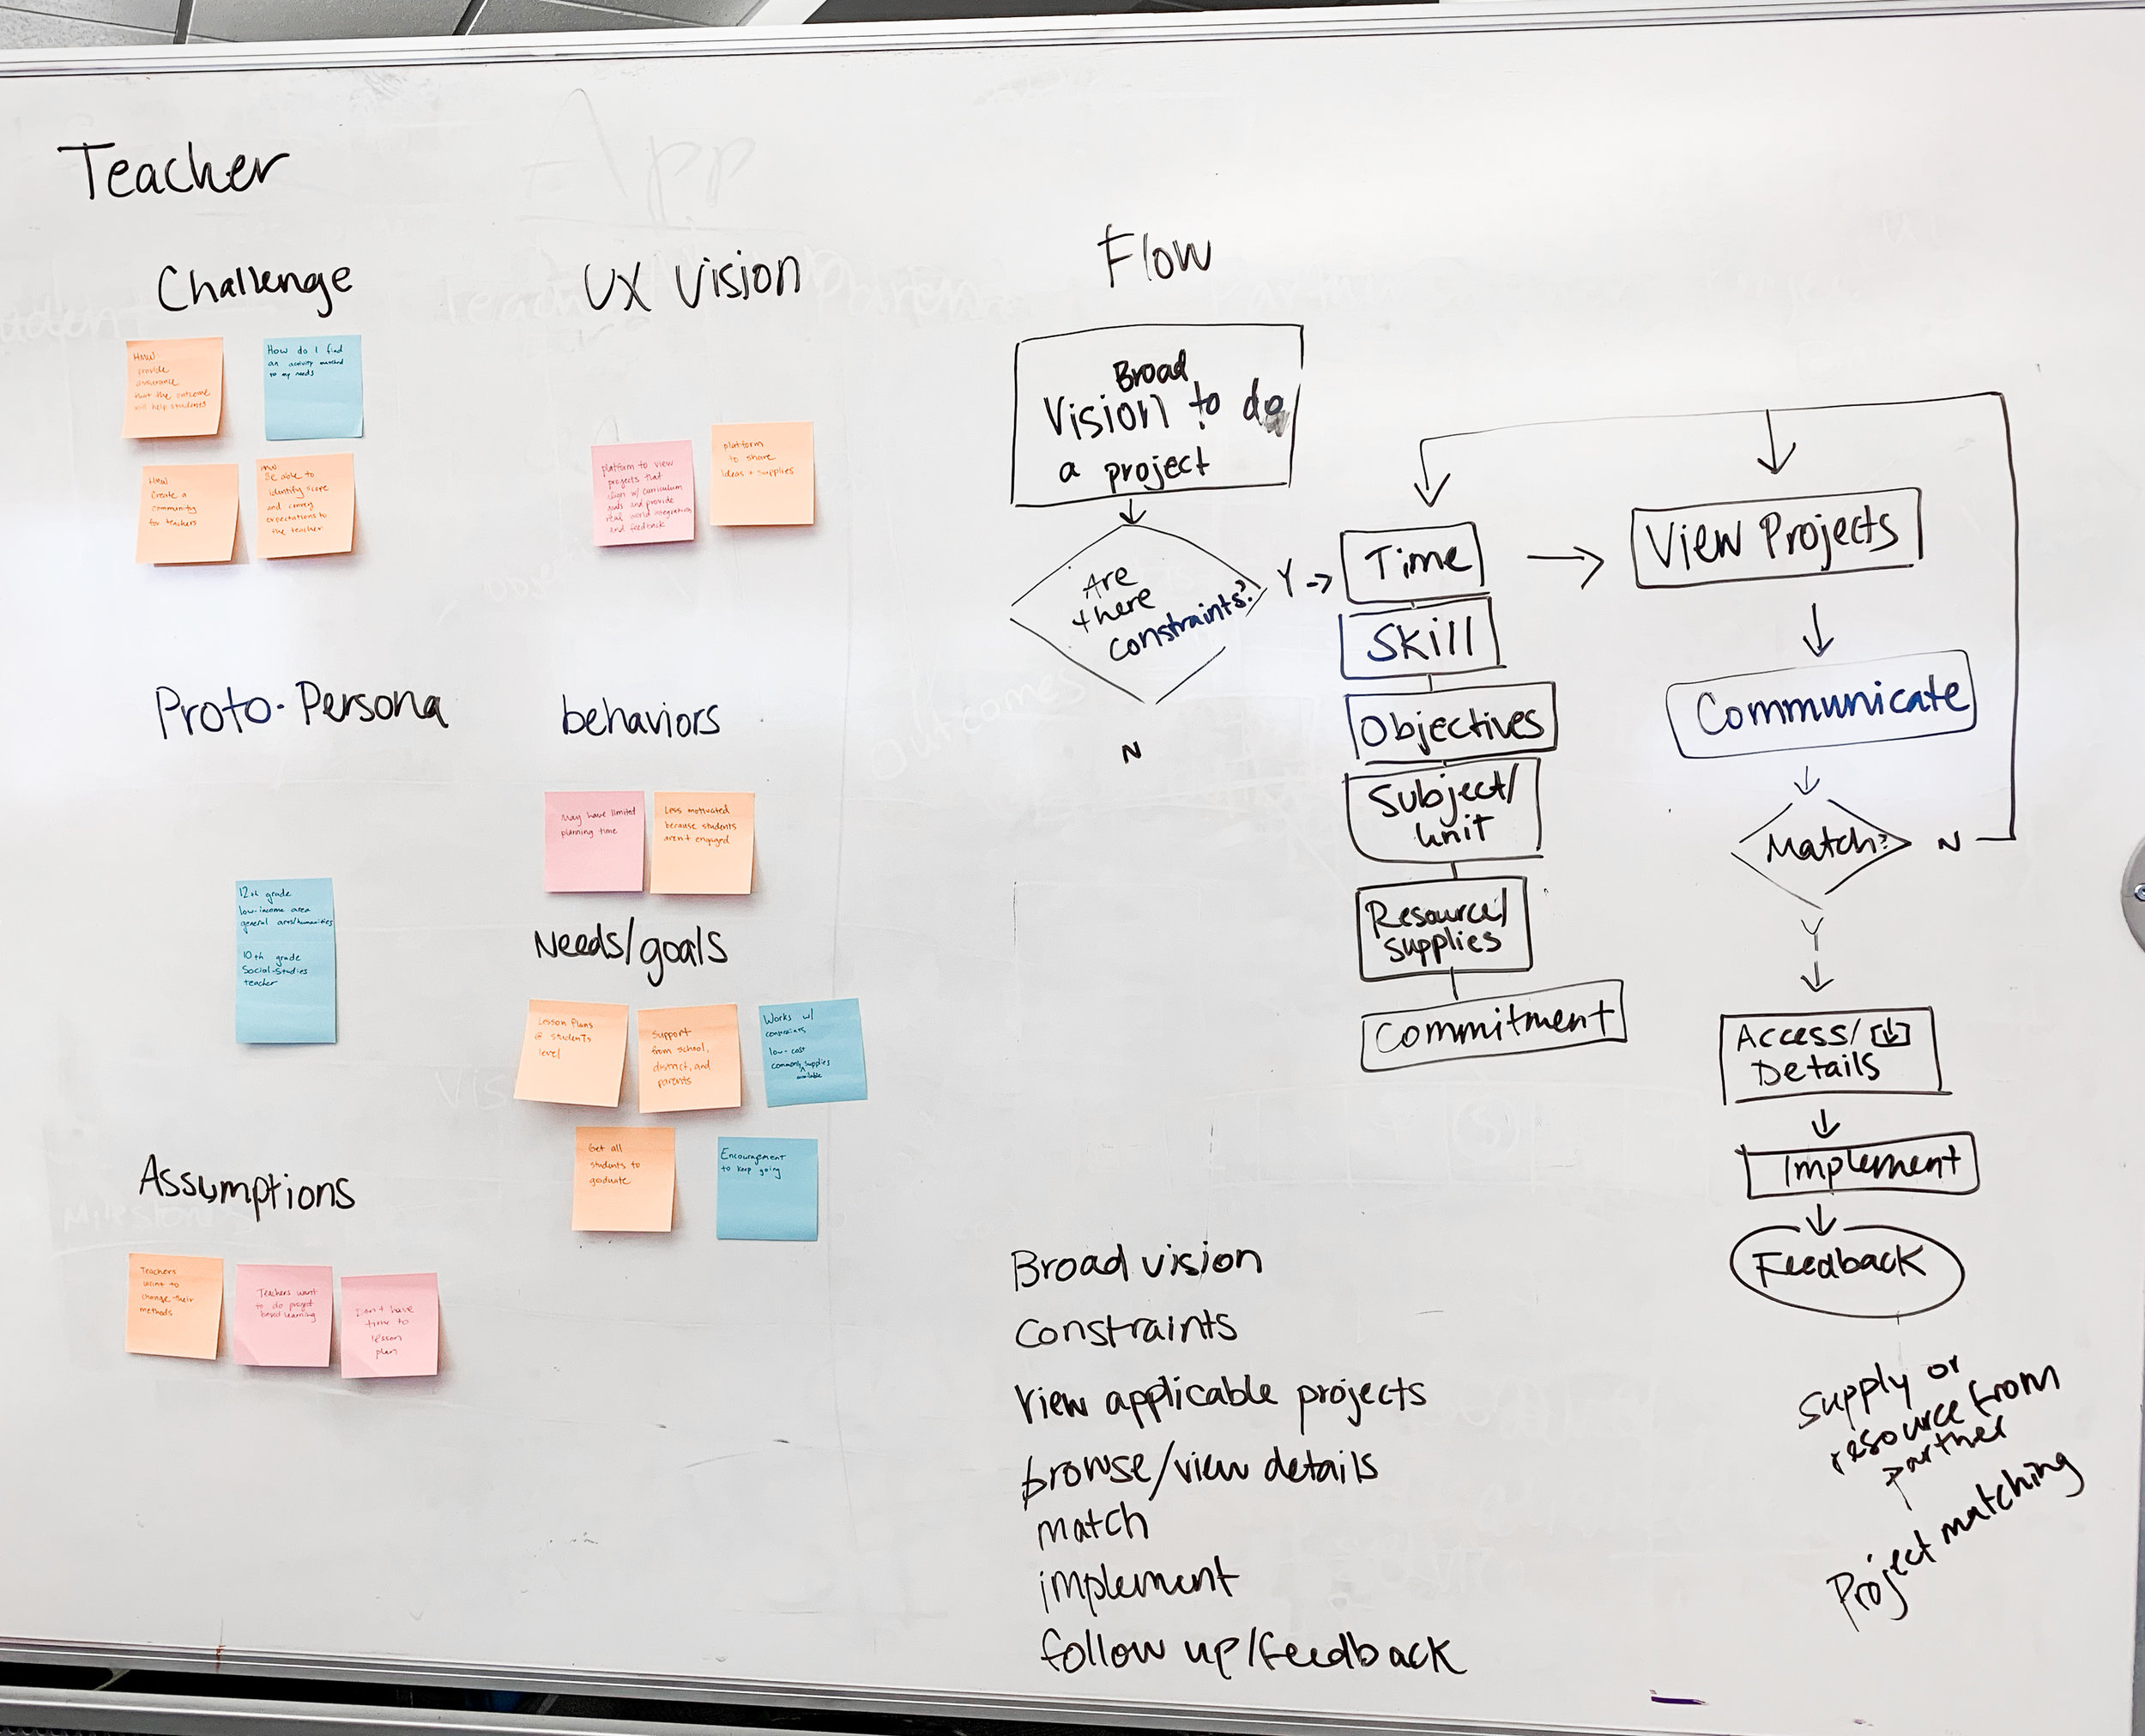 Teacher
Challenge
HMW
provide
assurance
that the outcome
will help students
How do I find
an activity matched
to my needs
HMW
Create a
community
for teachers
HMW
Be able to
identify scope
and convey
expectations to
the teacher
UX Vision
platform to view
projects that
align w/ curriculum
goals and provide
real world integration
and feedback
platform
to share
ideas + supplies
Proto-Persona
12th grade
low-income area
general arts/humanities
10th grade
Social-Studies
teacher
behaviors
May have limited
planning time
Less motivated
because students
aren't engaged
Needs/goals
Lesson plans
@ students
level
Support
from school,
district, and
parents
Works w/
constraints
low-cost
commonly supplies
available
Get all
students to
graduate
Encouragement
to keep going
Assumptions
Teachers
want to
change their
methods
Teachers want
to do project
based learning
Don't have
time to
lesson
plan
Flow
Broad
Vision to do
a project
Are
there
constraints?
Y
N
Time
Skill
Objectives
Subject/
Unit
Resource/
supplies
Commitment
View Projects
Communicate
Match?
N
Y
Access/
Details
Implement
Feedback
Broad vision
constraints
view applicable projects
browse/view details
match
implement
follow up/feedback
supply or
resource from
partner
Project matching
App
Outcomes